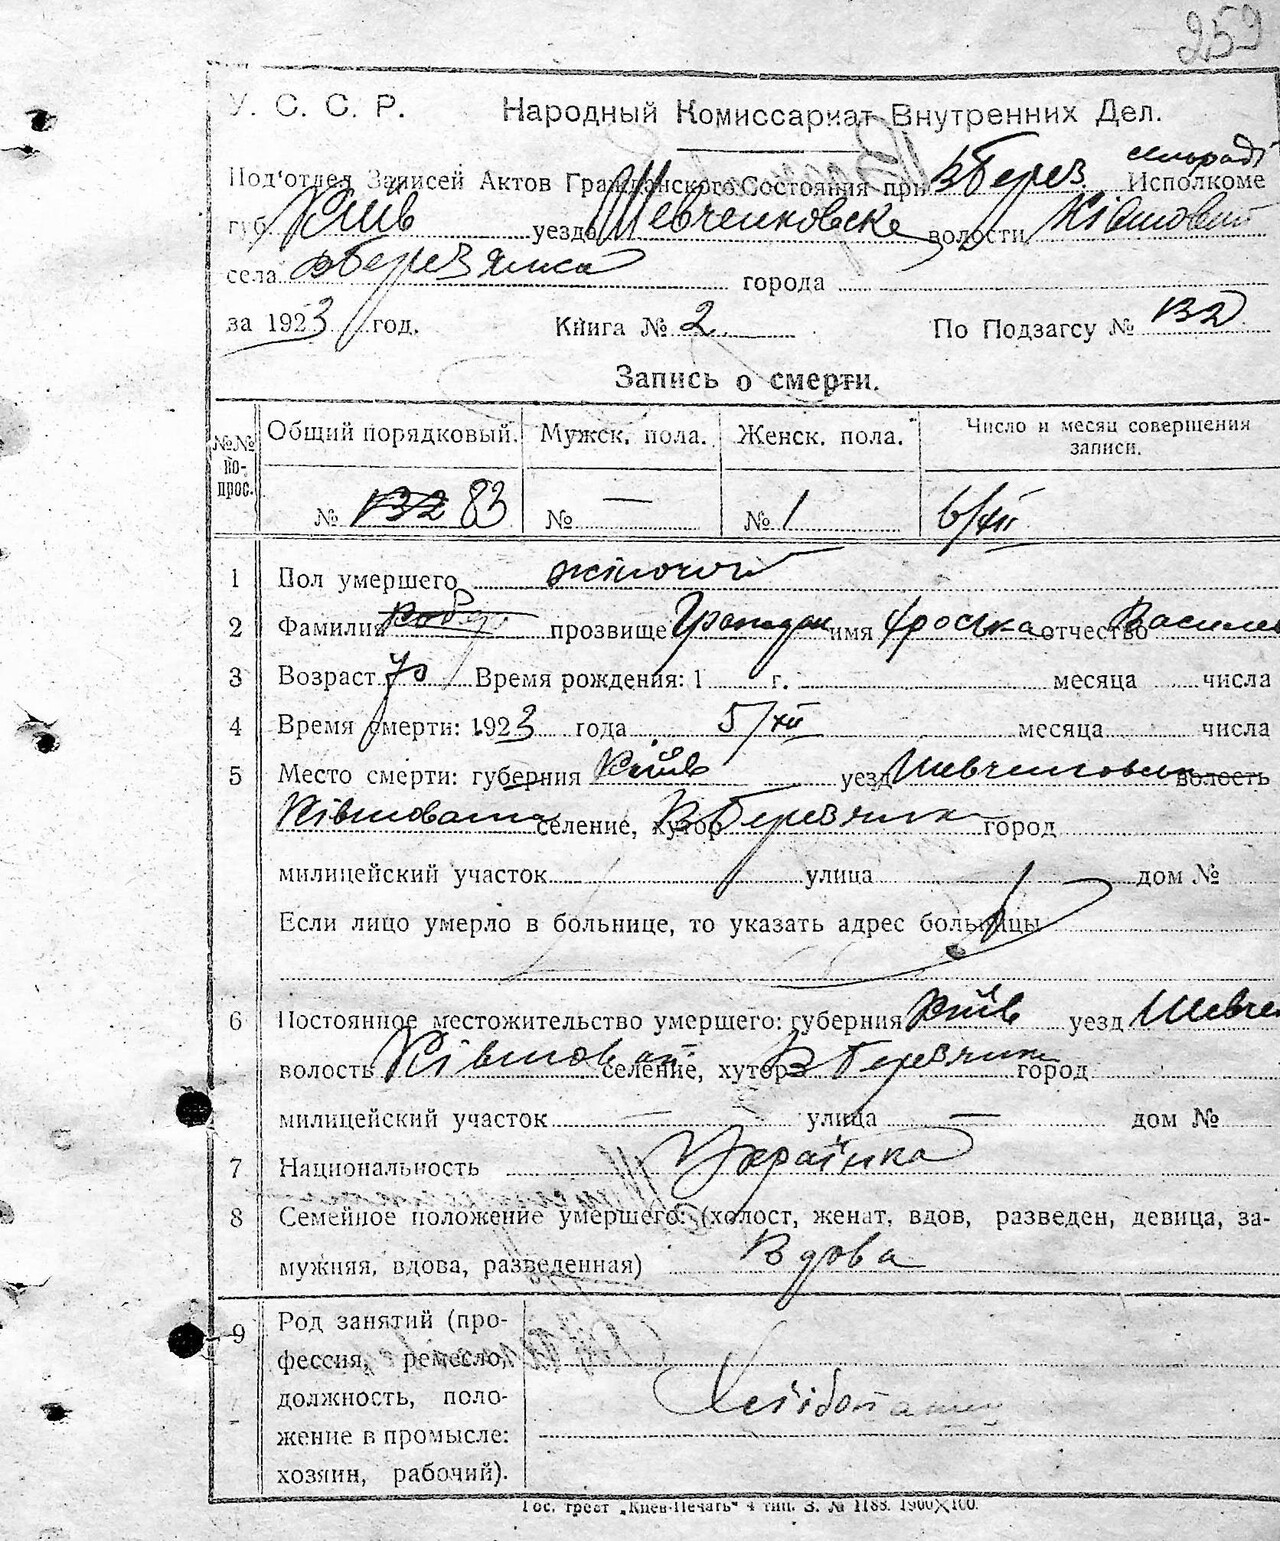 259
У. С. С. Р. Народный Комиссариат Внутренних Дел.
сільраді
Под'отдел Записей Актов Гражданского Состояния при В Берез. Исполкоме
губ. Київ уезда Шевченковске волости
села В Березянка города
за 1923 год. Книга № 2 По Подзагсу № 132
Запись о смерти.
№№ вопрос. Общий порядковый. Мужск. пола. Женск. пола. Число и месяц совершения записи.
№ 132 83 № — № 1 6/XII
1 Пол умершего жіночої
2 Фамилия прозвище имя Фроська отчество Василев
3 Возраст Время рождения: 1 г. месяца числа
4 Время смерти: 1923 года 5/XII месяца числа
5 Место смерти: губерния Київ уезд Шевченковск волость
селение, хутор В Березянка город
милицейский участок улица дом №
Если лицо умерло в больнице, то указать адрес больницы
6 Постоянное местожительство умершего: губерния Київ уезд Шевче
волость селение, хутор В Березянка город
милицейский участок — улица — дом №
7 Национальность Українка
8 Семейное положение умершего: (холост, женат, вдов, разведен, девица, за-
мужняя, вдова, разведенная) Вдова
9 Род занятий (про-
фессия, ремесло,
должность, поло-
жение в промысле:
хозяин, рабочий).
Гос. трест „Киев-Печать“ 4 тип. З. № 1188. 1900×100.